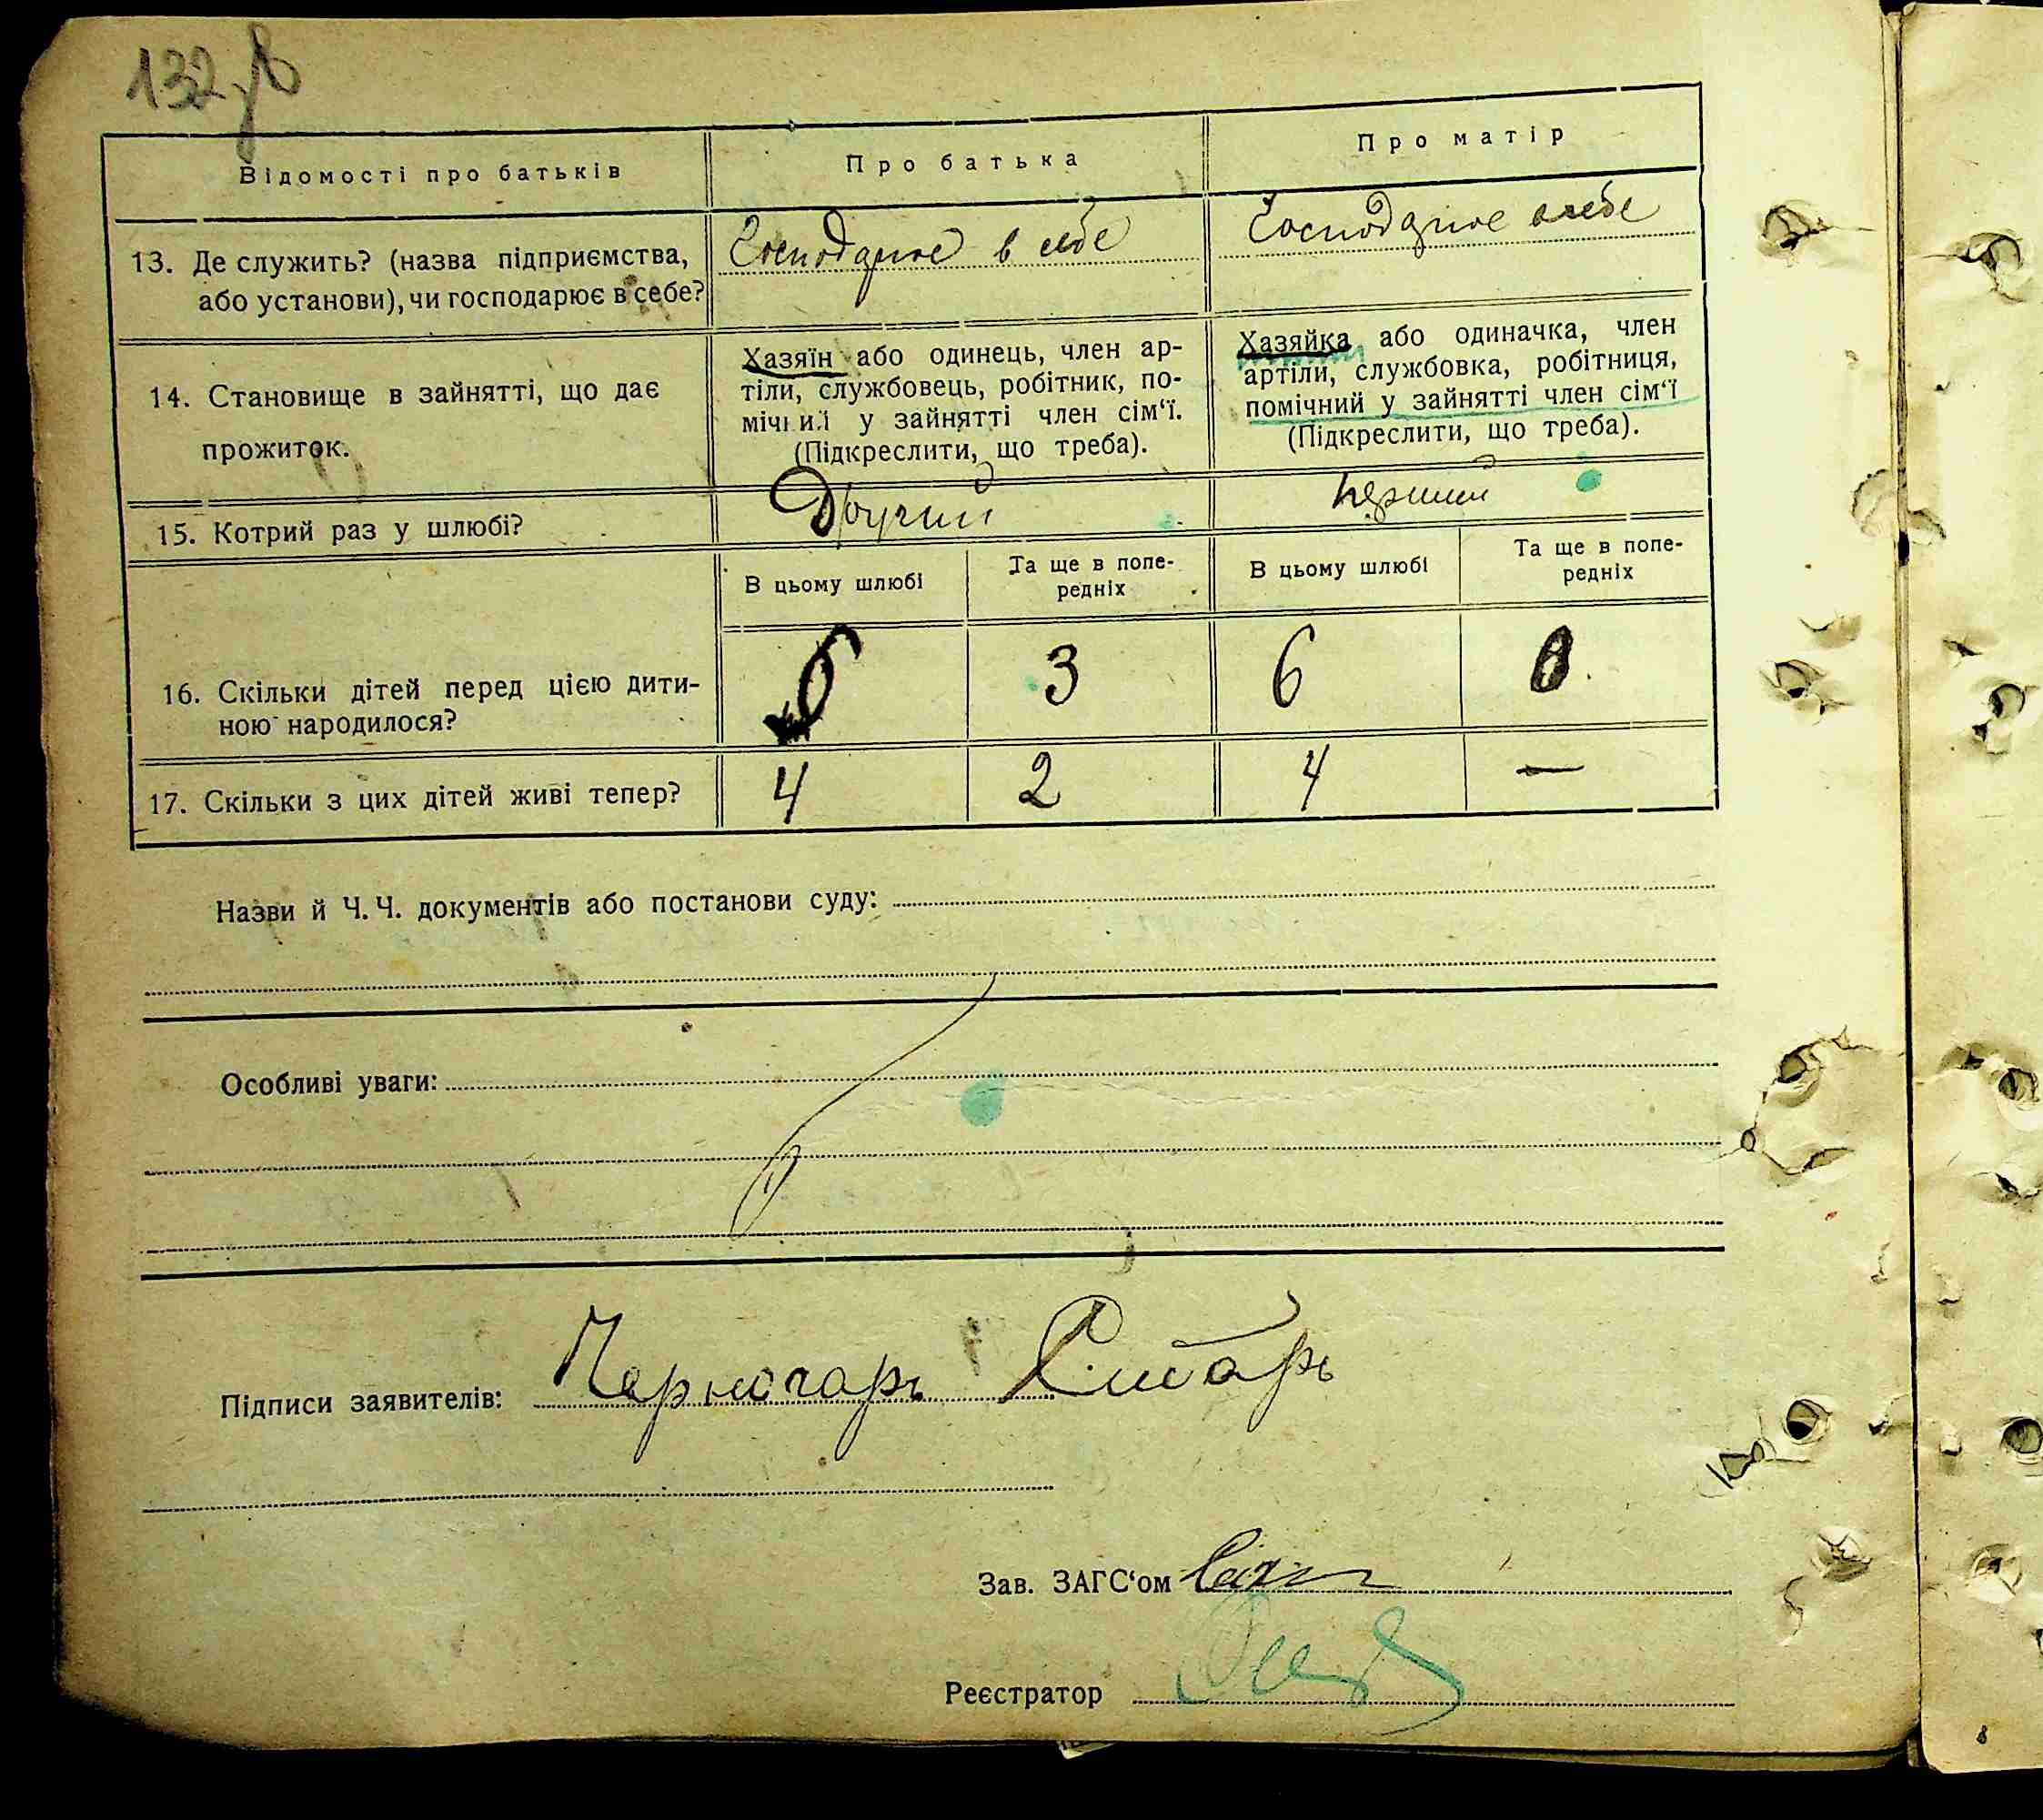 132 зв
Відомості про батьків
Про батька
Про матір
13. Де служить? (назва підприємства,
або установи), чи господарює в себе?
Господарює в себе
Господарює в себе
14. Становище в зайнятті, що дає
прожиток.
Хазяїн або одинець, член ар-
тіли, службовець, робітник, по-
мічний у зайнятті член сім‘ї.
(Підкреслити, що треба).
Хазяйка або одиначка, член
артіли, службовка, робітниця,
помічний у зайнятті член сім‘ї
(Підкреслити, що треба).
15. Котрий раз у шлюбі?
Другий
перший
В цьому шлюбі
Та ще в попе-
редніх
В цьому шлюбі
Та ще в попе-
редніх
16. Скільки дітей перед цією дити-
ною народилося?
6
3
6
0
17. Скільки з цих дітей живі тепер?
4
2
4
—
Назви й Ч. Ч. документів або постанови суду:
Особливі уваги:
Підписи заявителів:
Зав. ЗАГС‘ом
Реєстратор